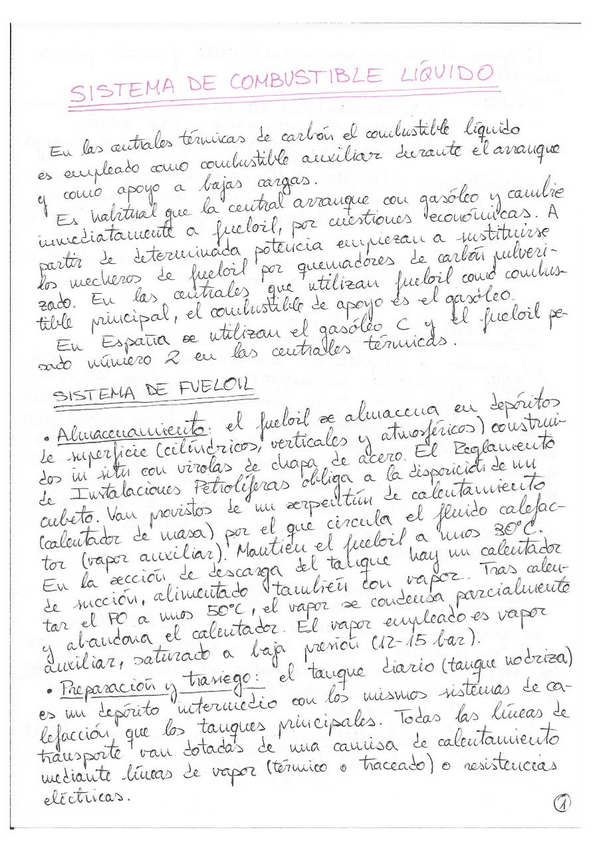 SISTEMA DE COMBUSTIBLE LÍQUIDO
En las centrales térmicas de carbón el combustible líquido
es empleado como combustible auxiliar durante el arranque
y como apoyo a bajas cargas.
Es habitual que la central arranque con gasóleo y cambie
inmediatamente a fueloil, por cuestiones económicas. A
partir de determinada potencia empiezan a sustituirse
los mecheros de fueloil por quemadores de carbón pulveri-
zado. En las centrales que utilizan fueloil como combus-
tible principal, el combustible de apoyo es el gasóleo.
En España se utilizan el gasóleo C y el fueloil pe-
sado número 2 en las centrales térmicas.
SISTEMA DE FUELOIL
• Almacenamiento: el fueloil se almacena en depósitos
de superficie (cilíndricos, verticales y atmosféricos) construi-
dos in situ con virolas de chapa de acero. El Reglamento
de Instalaciones Petrolíferas obliga a la disposición de un
cubeto. Van provistos de un serpentín de calentamiento
(calentador de masa) por el que circula el fluido calefac-
tor (vapor auxiliar). Mantien el fueloil a unos 30°C.
En la sección de descarga del tanque hay un calentador
de succión, alimentado también con vapor. Tras calen-
tar el FO a unos 50°C, el vapor se condensa parcialmente
y abandona el calentador. El vapor empleado es vapor
auxiliar, saturado a baja presión (12-15 bar).
• Preparación y trasiego: el tanque diario (tanque nodriza)
es un depósito intermedio con los mismos sistemas de ca-
lefacción que los tanques principales. Todas las líneas de
transporte van dotadas de una camisa de calentamiento
mediante líneas de vapor (térmico o traceado) o resistencias
eléctricas.
1